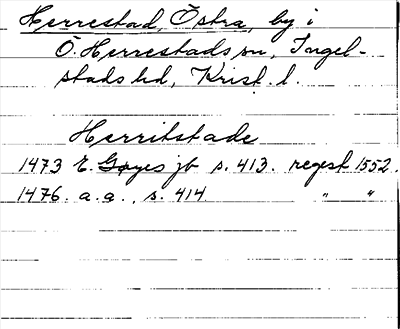 Herrestad, Östra, by i
Ö. Herrestads sn, Ingel-
stads hd, Krist. l.
Herritstade
1473 E. Gøyes jb s. 413. regest 1552.
1476. a.a., s. 414 " "